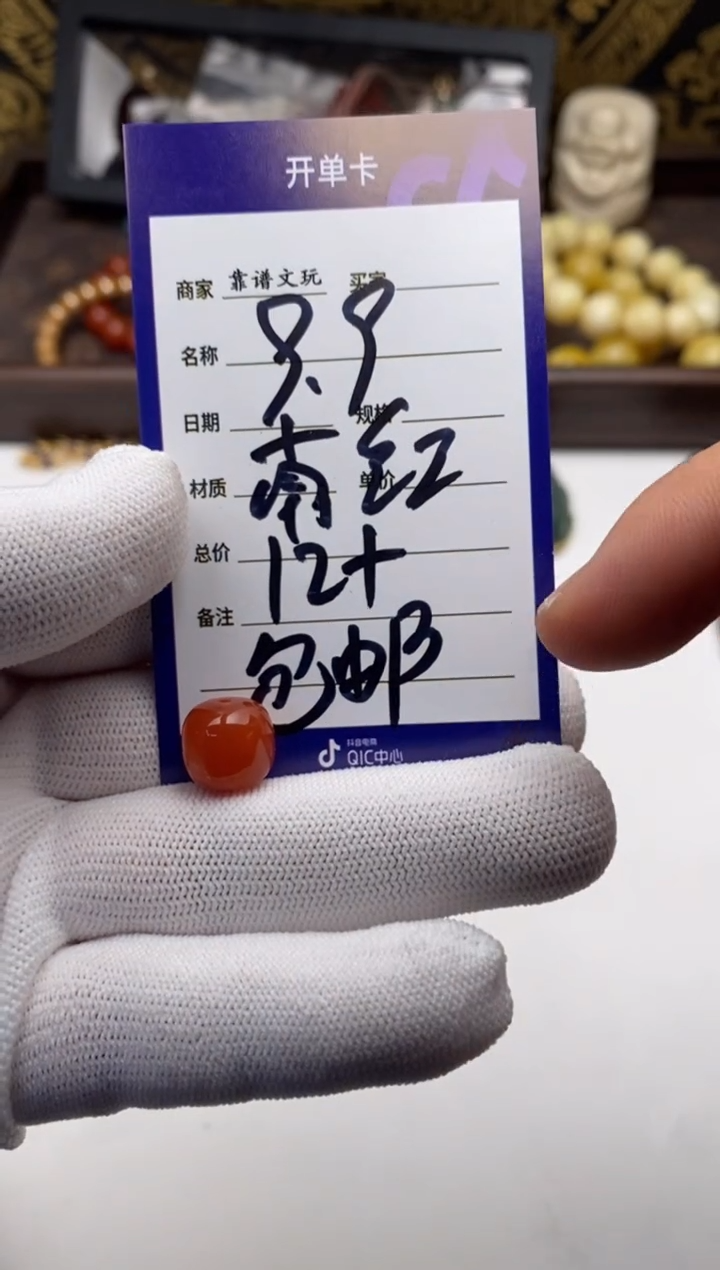 开单卡
商家 靠谱文玩 买家
名称
9.9
日期 规格
材质 南红 单价
总价 12+
备注
包邮
抖音电商
QIC中心